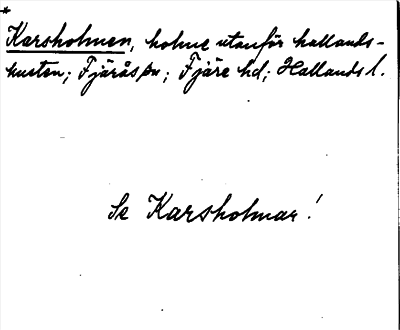 *
Karsholmen, holme utanför hallands-
kusten; Fjärås sn; Fjäre hd; Hallands l.
Se Karsholmar!